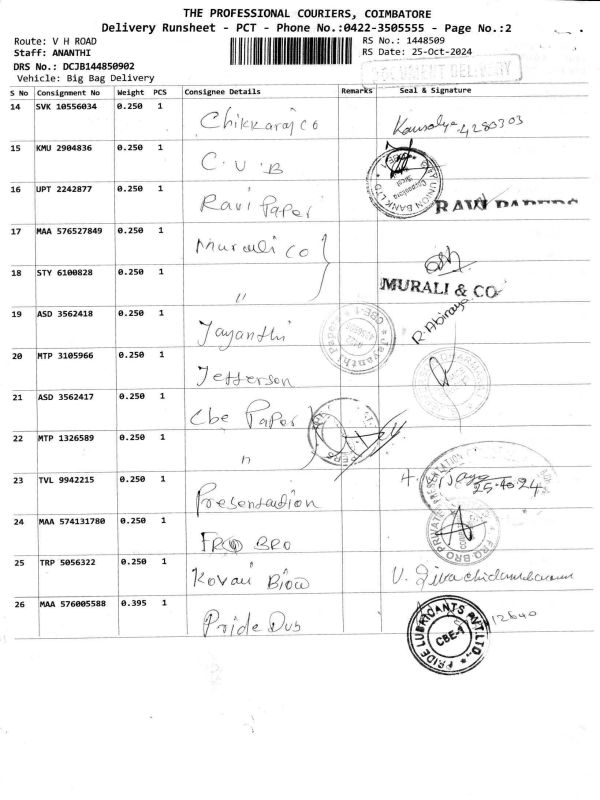 THE PROFESSIONAL COURIERS, COIMBATORE
Delivery Runsheet - PCT - Phone No.:0422-3505555 - Page No.:2
Route: V H ROAD
RS No.: 1448509
Staff: ANANTHI
RS Date: 25-Oct-2024
DRS No.: DCJB144850902
DOCUMENT DELIVERY
Vehicle: Big Bag Delivery
S No Consignment No Weight PCS Consignee Details Remarks Seal & Signature
14 SVK 10556034 0.250 1 Chikkaraj co Kausalya 4280303
15 KMU 2904836 0.250 1 C. U. B
UNION BANK LTD
16 UPT 2242877 0.250 1 Ravi Paper RAVI PAPERS
17 MAA 576527849 0.250 1 Murali co
18 STY 6100828 0.250 1 " MURALI & CO
19 ASD 3562418 0.250 1 Jayanthi R. Abiraya
20 MTP 3105966 0.250 1 Jefferson
21 ASD 3562417 0.250 1 Cbe Paper
22 MTP 1326589 0.250 1 "
23 TVL 9942215 0.250 1 Presentation 25.10.24
24 MAA 574131780 0.250 1 FRO BRO
FRO BRO PRIVATE
25 TRP 5056322 0.250 1 Kovai Biow
26 MAA 576005588 0.395 1 Pride Dub 12640
PRIDE LUBRICANTS PVT.LTD.,
CBE-1